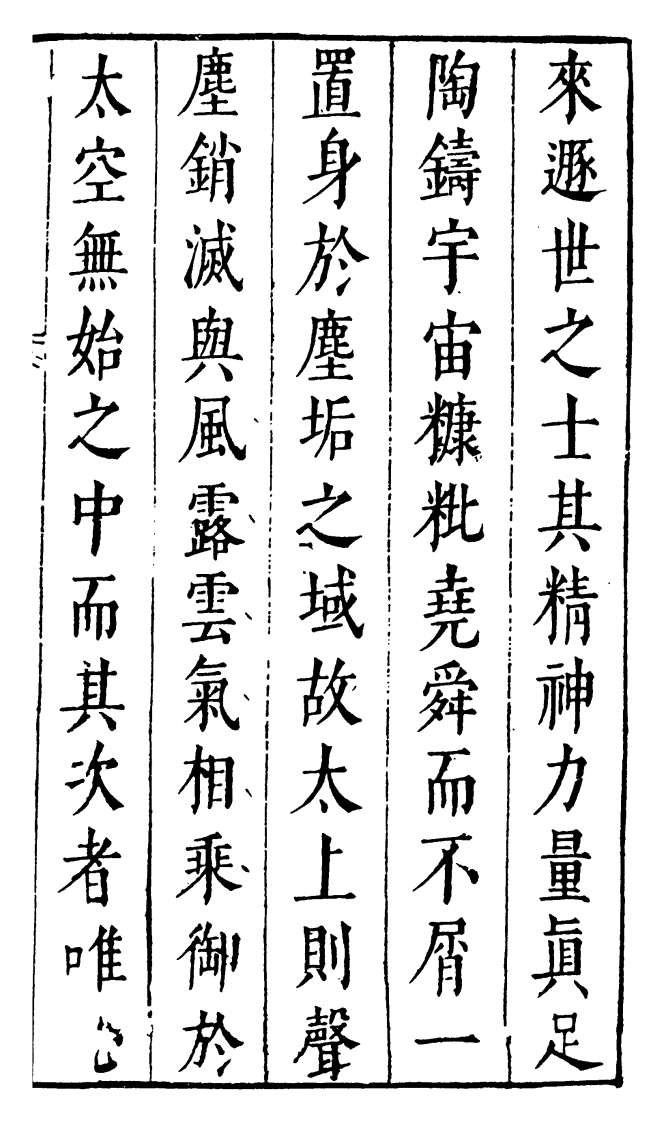 來遯世之士其精神力量眞足
陶鑄宇宙糠粃堯舜而不屑一
置身於塵垢之域故太上則聲
塵銷滅與風露雲氣相乘御於
太空無始之中而其次者唯